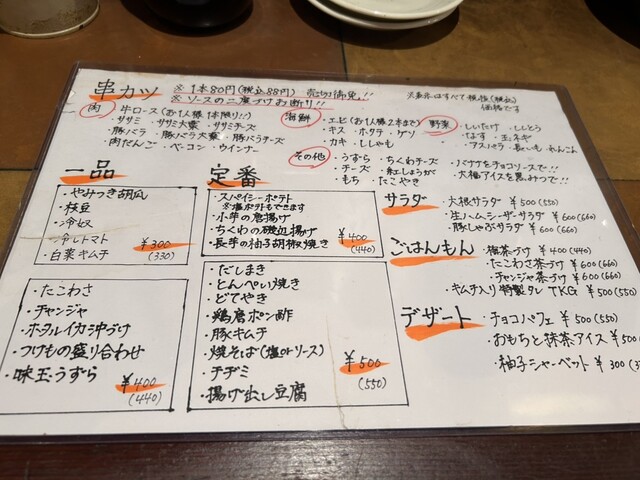 串カツ
※1本80円(税込88円) 売切御免!!
※ソースの二度づけお断り!!
価格です
肉
・牛ロース(お1人様1本限り!!)
・ササミ ・ササミ大葉 ・ササミチーズ
・豚バラ ・豚バラ大葉 ・豚バラチーズ
・肉だんご ・ベーコン ・ウインナー
海鮮
・エビ(お1人様2本まで)
・キス ・ホタテ ・ゲソ
・カキ ・ししゃも
野菜
・しいたけ ・ししとう
・なす ・玉ネギ
・アスパラ ・長いも ・れんこん
その他
・うずら ・ちくわチーズ
・チーズ ・紅しょうが
・もち ・たこやき
・バナナをチョコソースで!!
・大福アイスを黒みつで!!
一品
・やみつき胡瓜
・枝豆
・冷奴
・冷しトマト
・白菜キムチ
¥300
(330)
・たこわさ
・チャンジャ
・ホタルイカ沖づけ
・つけもの盛り合わせ
・味玉うずら
¥400
(440)
定番
・スパイシーポテト
※塩ポテトもできます
・小芋の唐揚げ
・ちくわの磯辺揚げ
・長芋の柚子胡椒焼き
¥400
(440)
・だしまき
・とんぺい焼き
・どてやき
・鶏唐ポン酢
・豚キムチ
・焼そば(塩orソース)
・チヂミ
・揚げ出し豆腐
¥500
(550)
サラダ
・大根サラダ ¥500(550)
・生ハムシーザーサラダ ¥600(660)
・豚しゃぶサラダ ¥600(660)
ごはんもん
・梅茶づけ ¥400(440)
・たこわさ茶づけ ¥600(660)
・チャンジャ茶づけ ¥600(660)
・キムチ入り特製タレTKG ¥500(550)
デザート
・チョコパフェ ¥500(550)
・おもちと抹茶アイス ¥500(550)
・柚子シャーベット ¥300